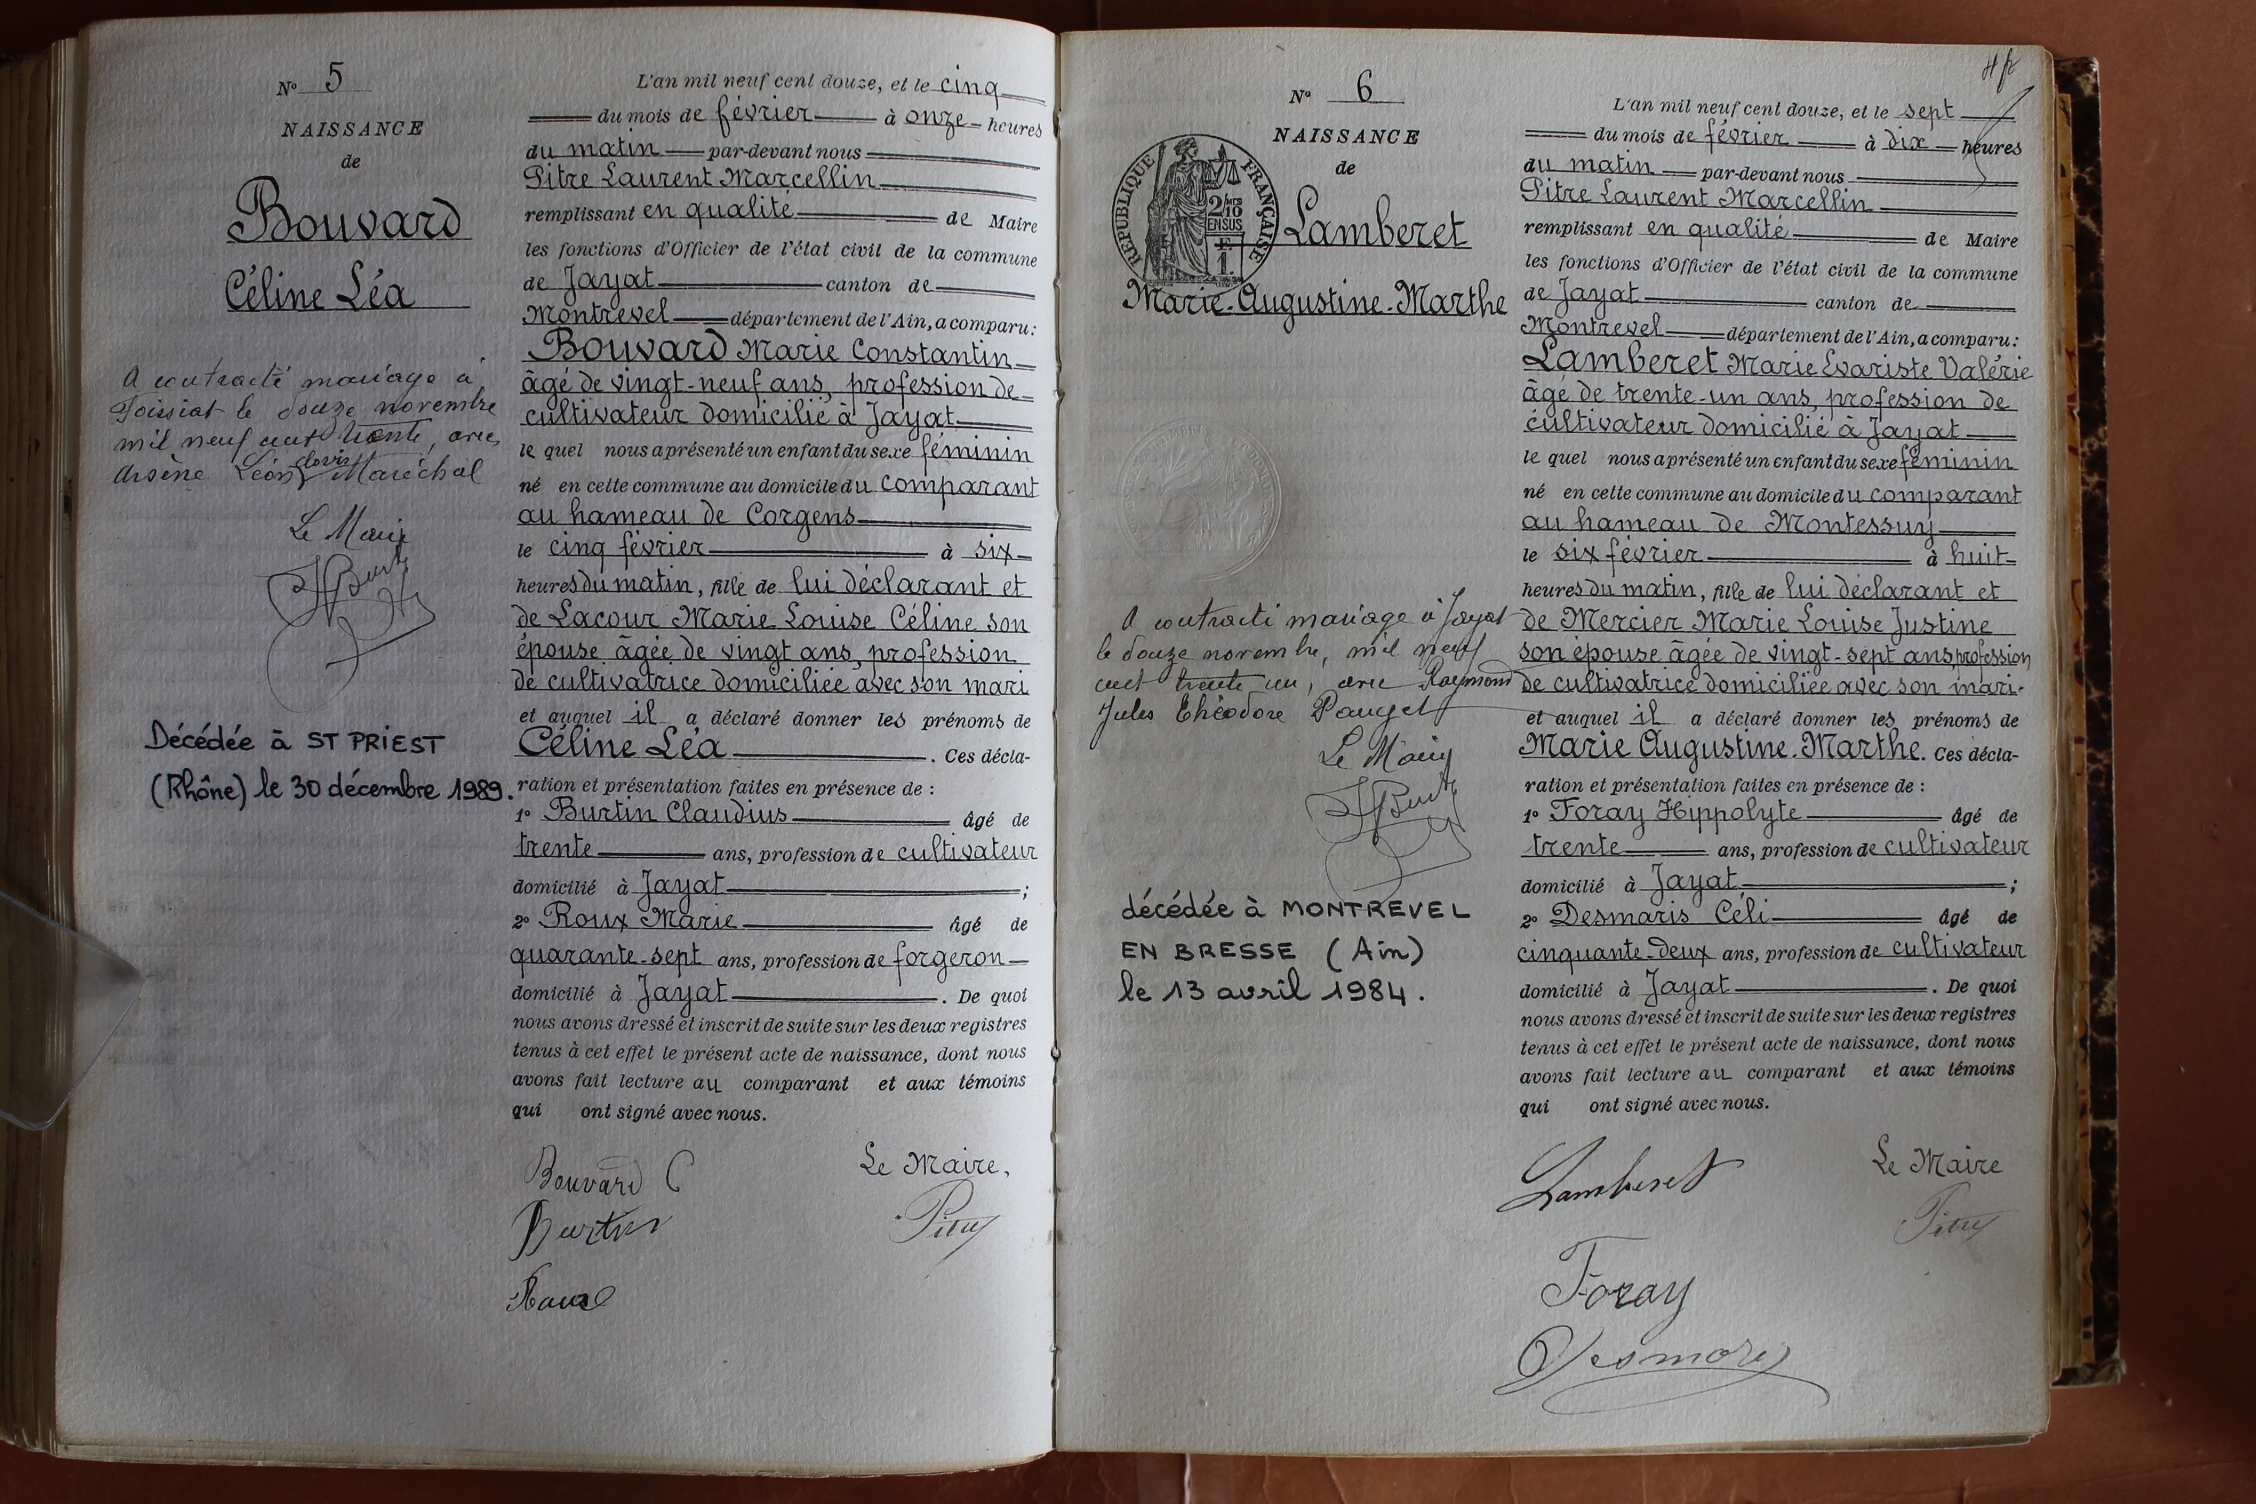 N° 5
NAISSANCE
de
Bouvard
Céline Léa
A contracté mariage à
Foissiat le douze novembre
mil neuf cent trente, avec
Arsène Léon Clovis Maréchal
Le Maire
Décédée à ST PRIEST
(Rhône) le 30 décembre 1989.
L'an mil neuf cent douze, et le cinq
du mois de février à onze heures
du matin par-devant nous
Pitre Laurent Marcellin
remplissant en qualité de Maire
les fonctions d'Officier de l'état civil de la commune
de Jayat canton de
Montrevel département de l'Ain, a comparu:
Bouvard Marie Constantin
âgé de vingt-neuf ans, profession de
cultivateur domicilié à Jayat
le quel nous a présenté un enfant du sexe féminin
né en cette commune au domicile du comparant
au hameau de Corgens
le cinq février à six
heures du matin, fille de lui déclarant et
de Lacour Marie Louise Céline son
épouse âgée de vingt ans, profession
de cultivatrice domiciliée avec son mari
et auquel il a déclaré donner les prénoms de
Céline Léa. Ces décla-
ration et présentation faites en présence de :
1° Burtin Claudius âgé de
trente ans, profession de cultivateur
domicilié à Jayat ;
2° Roux Marie âgé de
quarante-sept ans, profession de forgeron
domicilié à Jayat. De quoi
nous avons dressé et inscrit de suite sur les deux registres
tenus à cet effet le présent acte de naissance, dont nous
avons fait lecture au comparant et aux témoins
qui ont signé avec nous.
Bouvard C
Le Maire,
Burtin
Pitre
Roux
N° 6
NAISSANCE
de
RÉPUBLIQUE FRANÇAISE
2/10 EN SUS
Lamberet
Marie-Augustine-Marthe
A contracté mariage à Jayat
le douze novembre, mil neuf
cent trente un, avec Raymond
Jules Théodore Pauget
Le Maire
décédée à MONTREVEL
EN BRESSE (Ain)
le 13 avril 1984.
L'an mil neuf cent douze, et le sept
du mois de février à dix heures
du matin par-devant nous
Pitre Laurent Marcellin
remplissant en qualité de Maire
les fonctions d'Officier de l'état civil de la commune
de Jayat canton de
Montrevel département de l'Ain, a comparu:
Lamberet Marie Evariste Valérie
âgé de trente-un ans, profession de
cultivateur domicilié à Jayat
le quel nous a présenté un enfant du sexe féminin
né en cette commune au domicile du comparant
au hameau de Montessuy
le six février à huit
heures du matin, fille de lui déclarant et
de Mercier Marie Louise Justine
son épouse âgée de vingt-sept ans, profession
de cultivatrice domiciliée avec son mari
et auquel il a déclaré donner les prénoms de
Marie Augustine-Marthe. Ces décla-
ration et présentation faites en présence de :
1° Foray Hippolyte âgé de
trente ans, profession de cultivateur
domicilié à Jayat ;
2° Desmaris Céli âgé de
cinquante-deux ans, profession de cultivateur
domicilié à Jayat. De quoi
nous avons dressé et inscrit de suite sur les deux registres
tenus à cet effet le présent acte de naissance, dont nous
avons fait lecture au comparant et aux témoins
qui ont signé avec nous.
Lamberet
Le Maire
Pitre
Foray
Desmaris